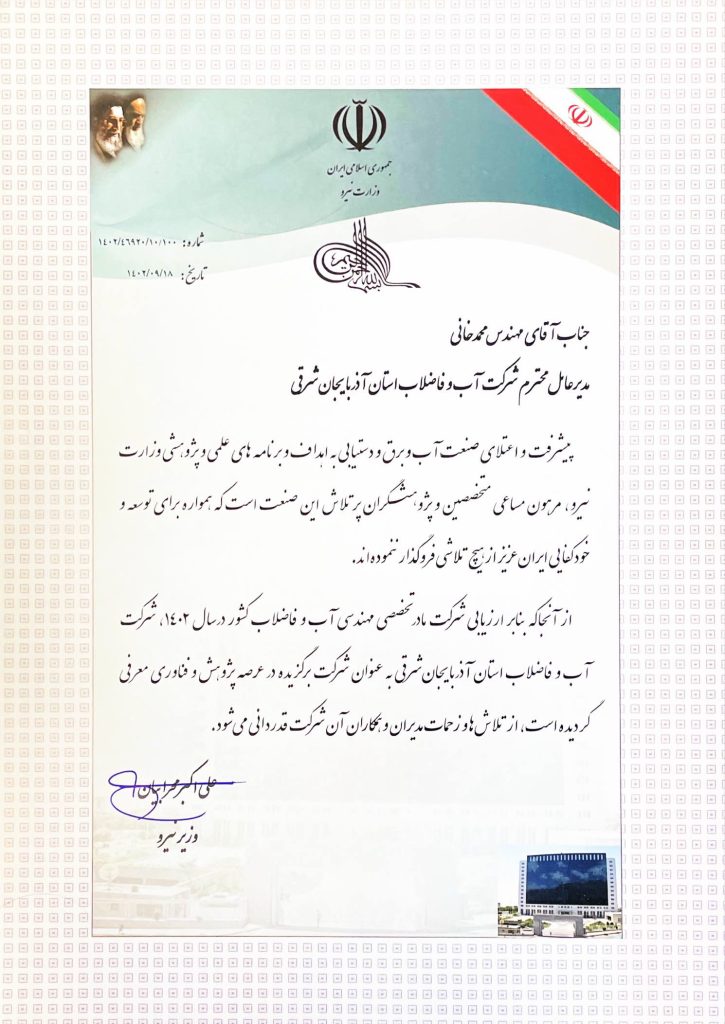 جمهوری اسلامی ایران
وزارت نیرو
شماره: ۱۴۰۲/۴۶۹۲۰/۱۰/۱۰۰
بسم الله الرحمن الرحیم
تاریخ: ۱۴۰۲/۰۹/۱۸
جناب آقای مهندس محمدخانی
مدیرعامل محترم شرکت آب و فاضلاب استان آذربایجان شرقی
پیشرفت و اعتلای صنعت آب و برق و دستیابی به اهداف و برنامه های علمی و پژوهشی وزارت
نیرو، مرهون مساعی متخصصین و پژوهشگران پرتلاش این صنعت است که همواره برای توسعه و
خودکفایی ایران عزیز از هیچ تلاشی فروگذار ننموده اند.
از آنجاکه بنابر ارزیابی شرکت مادرتخصصی مهندسی آب و فاضلاب کشور درسال ۱۴۰۲، شرکت
آب و فاضلاب استان آذربایجان شرقی به عنوان شرکت برگزیده در عرصه پژوهش و فناوری معرفی
گردیده است، از تلاش ها و زحمات مدیران و همکاران آن شرکت قدردانی می شود.
علی اکبر محرابیان
وزیر نیرو